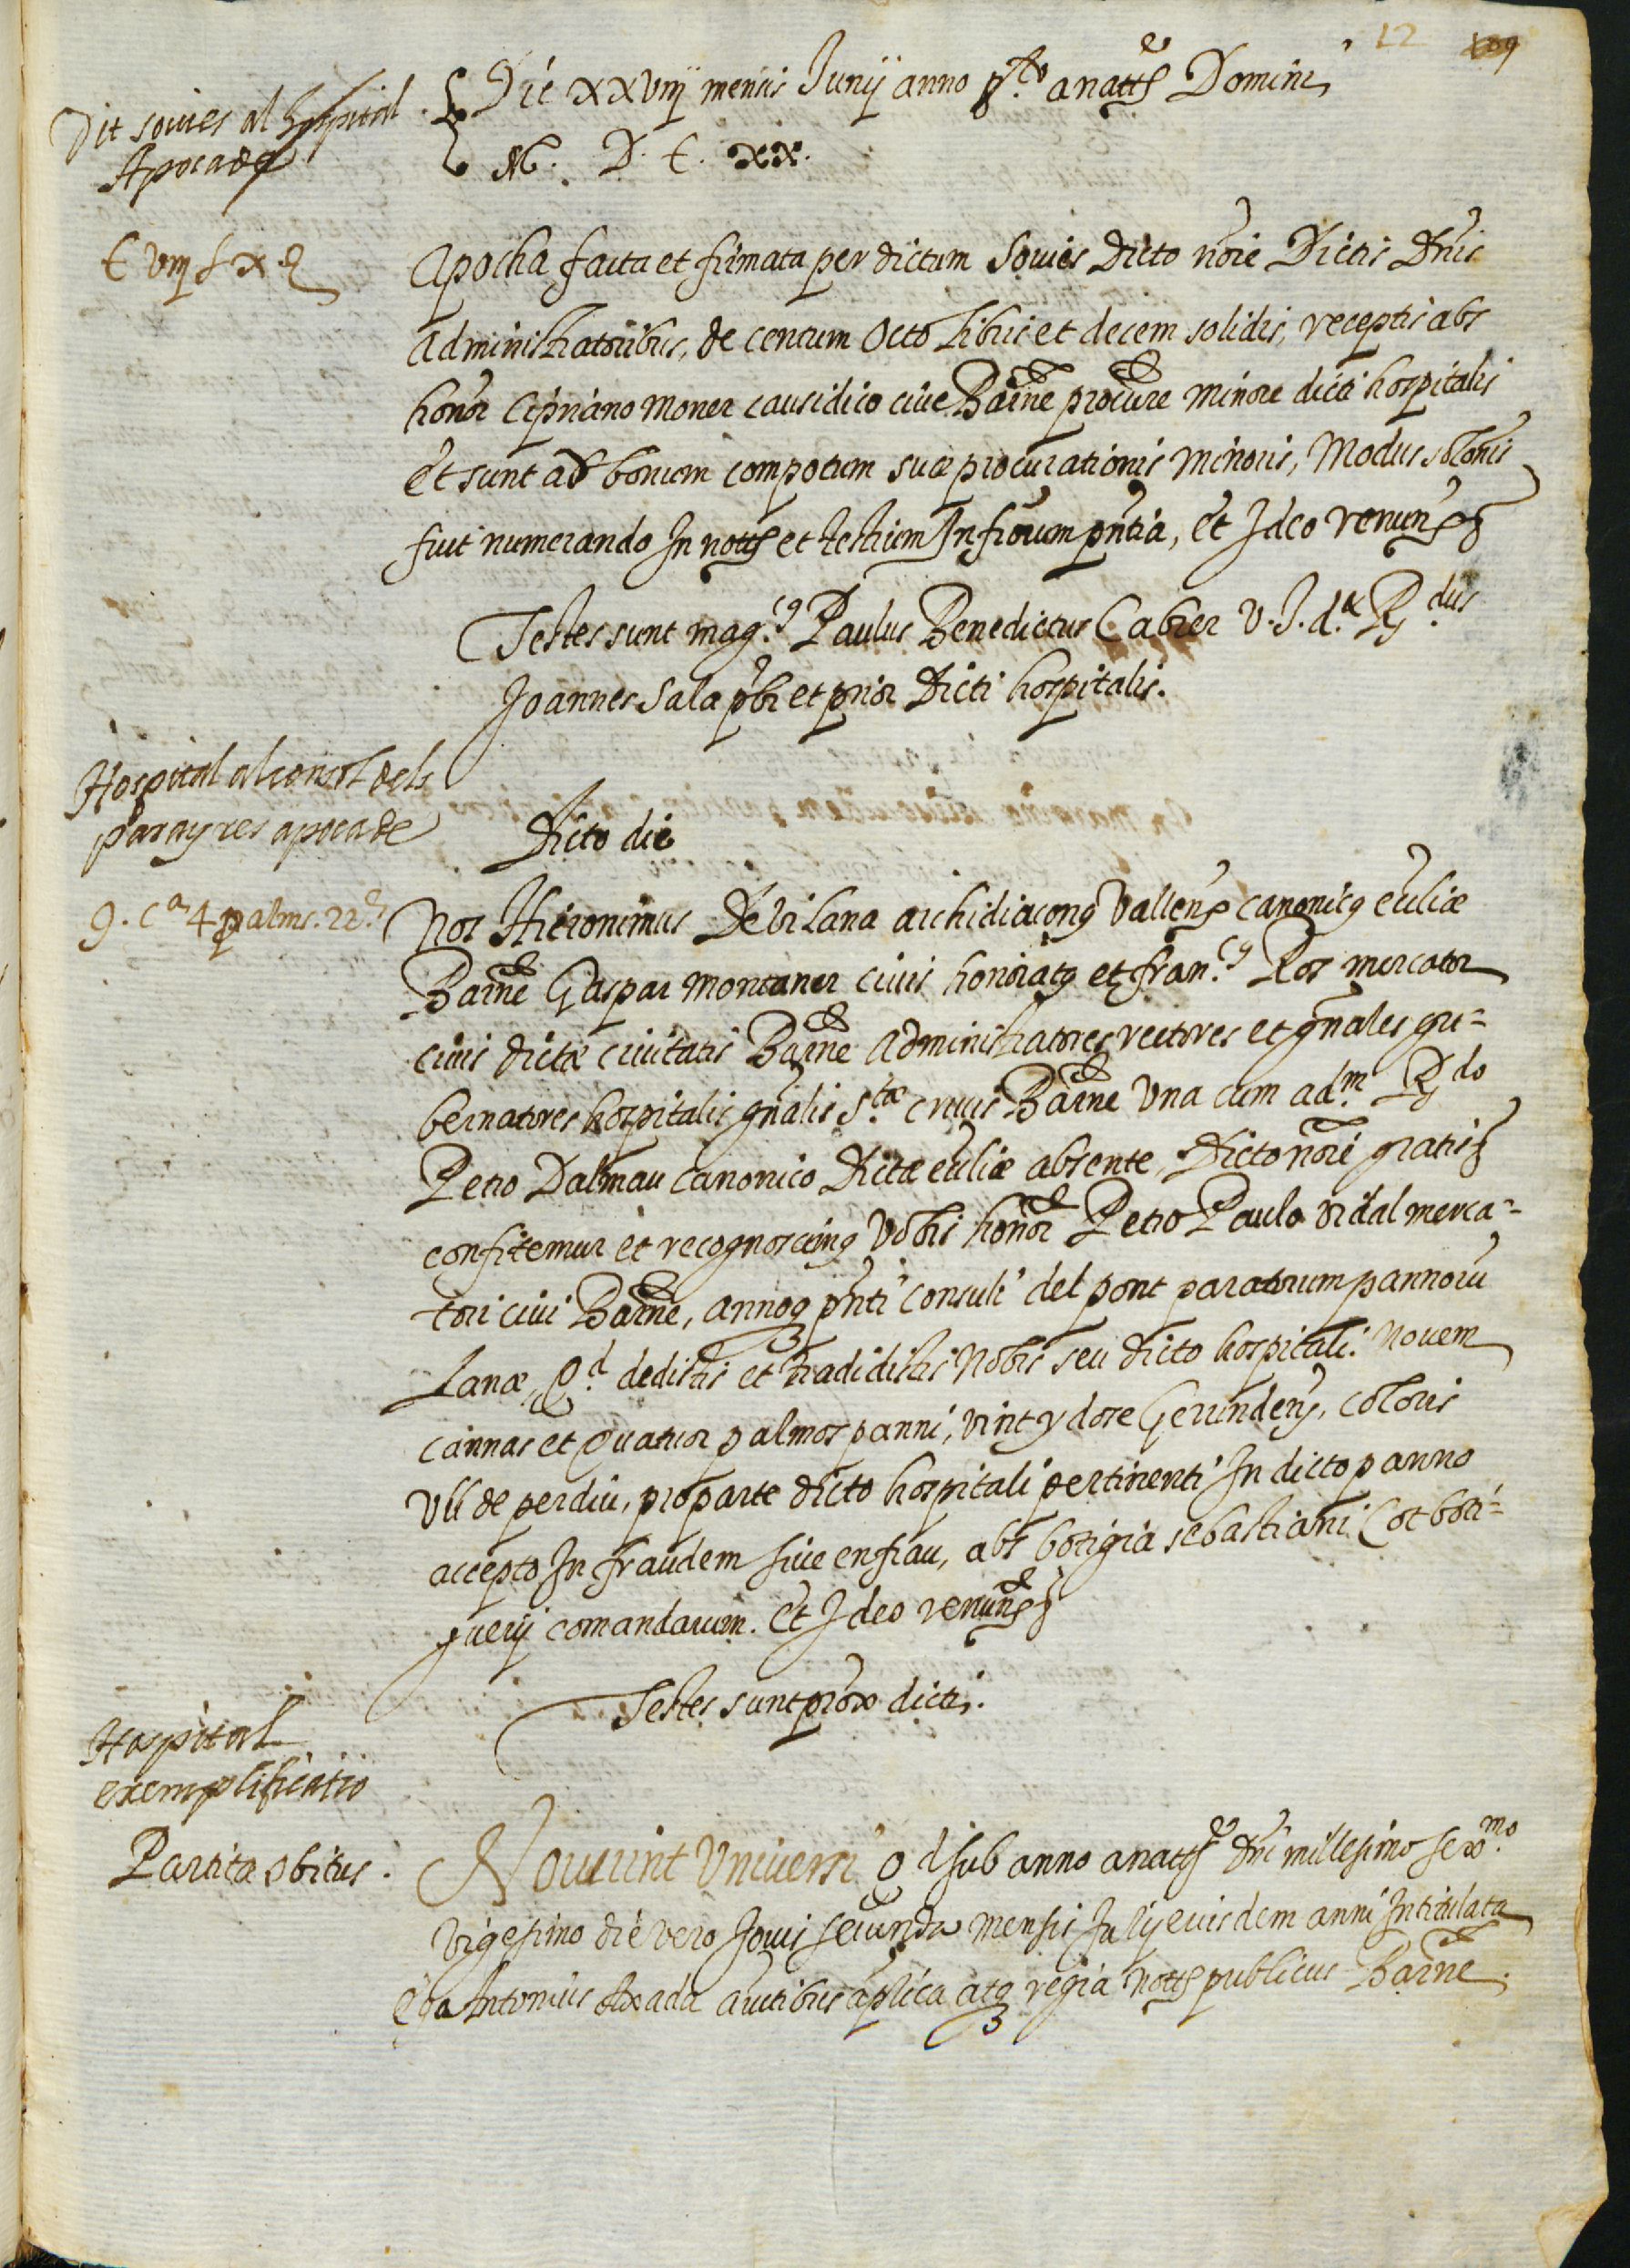 12 109
Dit sovies al hospital
Apoca de
C viij £ x s
Die xxviij mensis Junij anno p.to a natte Domini
M. D. C. xx.
Apocha facta et firmata per dictum Sovies Dicto noie Dictis Dnis
administratoribus, de centum octo Libris et decem solidis, receptis abs
honor Cipriano moner causidico cive Barne procure minore dicti hospitalis
et sunt ad bonum compotum suæ procurationis minoris, Modus solonis
fuit numerando In notts et testium Infrorum pntia, et Ideo renuns
Testes sunt mag.cus Paulus Benedictus Cabrer V. J. d. et Rdus
Joannes Sala pbr et prior Dicti hospitalis.
Hospital al consol dels
parayres apoca de
9. ca 4 palms. 22.
Dicto die
Nos Hieronimus De bilana archidiaconq Vallens canonicq ecclie
Barne Gaspar montaner civis honoratq et fran.cus Ros mercator
civis dictæ civitatis Barne Administratores rectores et gnales gu=
bernatores hospitalis gnalis S.tæ crucis Barne Una cum ad.m Rdo
Petro Dalmau canonico Dictæ ecclie absente, Dicto noie gratis
confitemur et recognoscimq Vobis honor Petro Paulo vidal merca=
tori civi Barne, annoq pnti consuli del pont paratorum pannoru
Lanæ, Qd dedistis et tradidistis Nobis seu dicto hospitali novem
cannas et Quatuor palmos panni, vint y dose Gerundens, coloris
Ull de perdiu, pro parte dicto hospitali pertinenti In dicto panno
accepto In fraudem sive en frau, abs botigia sebastiani Cot boti=
guerij comandarum. Et Ideo renuns
Testes sunt prox dicti.
Hospital
exemplificatio
Partita obitus.
Noverint Universi Qd sub anno a natte Dni millesimo sexmo.
vigesimo die vero Jovis secunda mensis Julij eiusdem anni Intitulata
Ego Antonius Axada auctibus aplica atq regia notts publicus Barne.